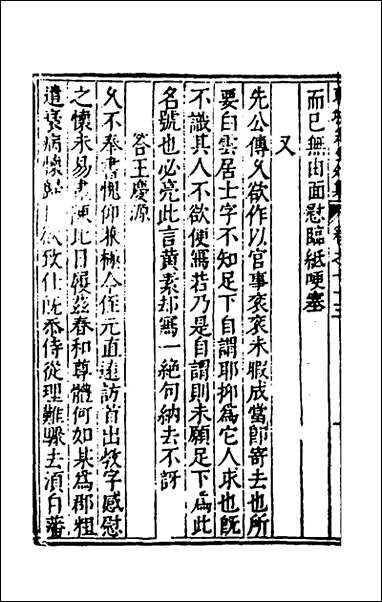 而已無由面慰臨紙哽塞
又
先公傳久欲作以官事衮衮未暇成當即寄去也所
要白雲居士字不知足下自謂耶抑為它人求也既
不識其人不欲便寫若乃是自謂則未願足下為此
名號也必亮此言黃素却寫一絶句納去不訝
荅王慶源
久不奉書愧仰兼極令侄元直遠訪首出教字感慰
之懷未易此日履兹春和尊體何如某為郡粗
遣衰病懷歸致仕既忝侍從理難驟去須自蕃